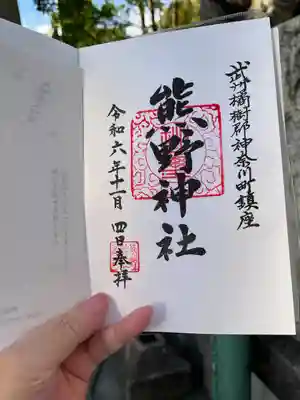 武州橘樹郡神奈川町鎮座
熊野神社
令和六年十一月 四日奉拝